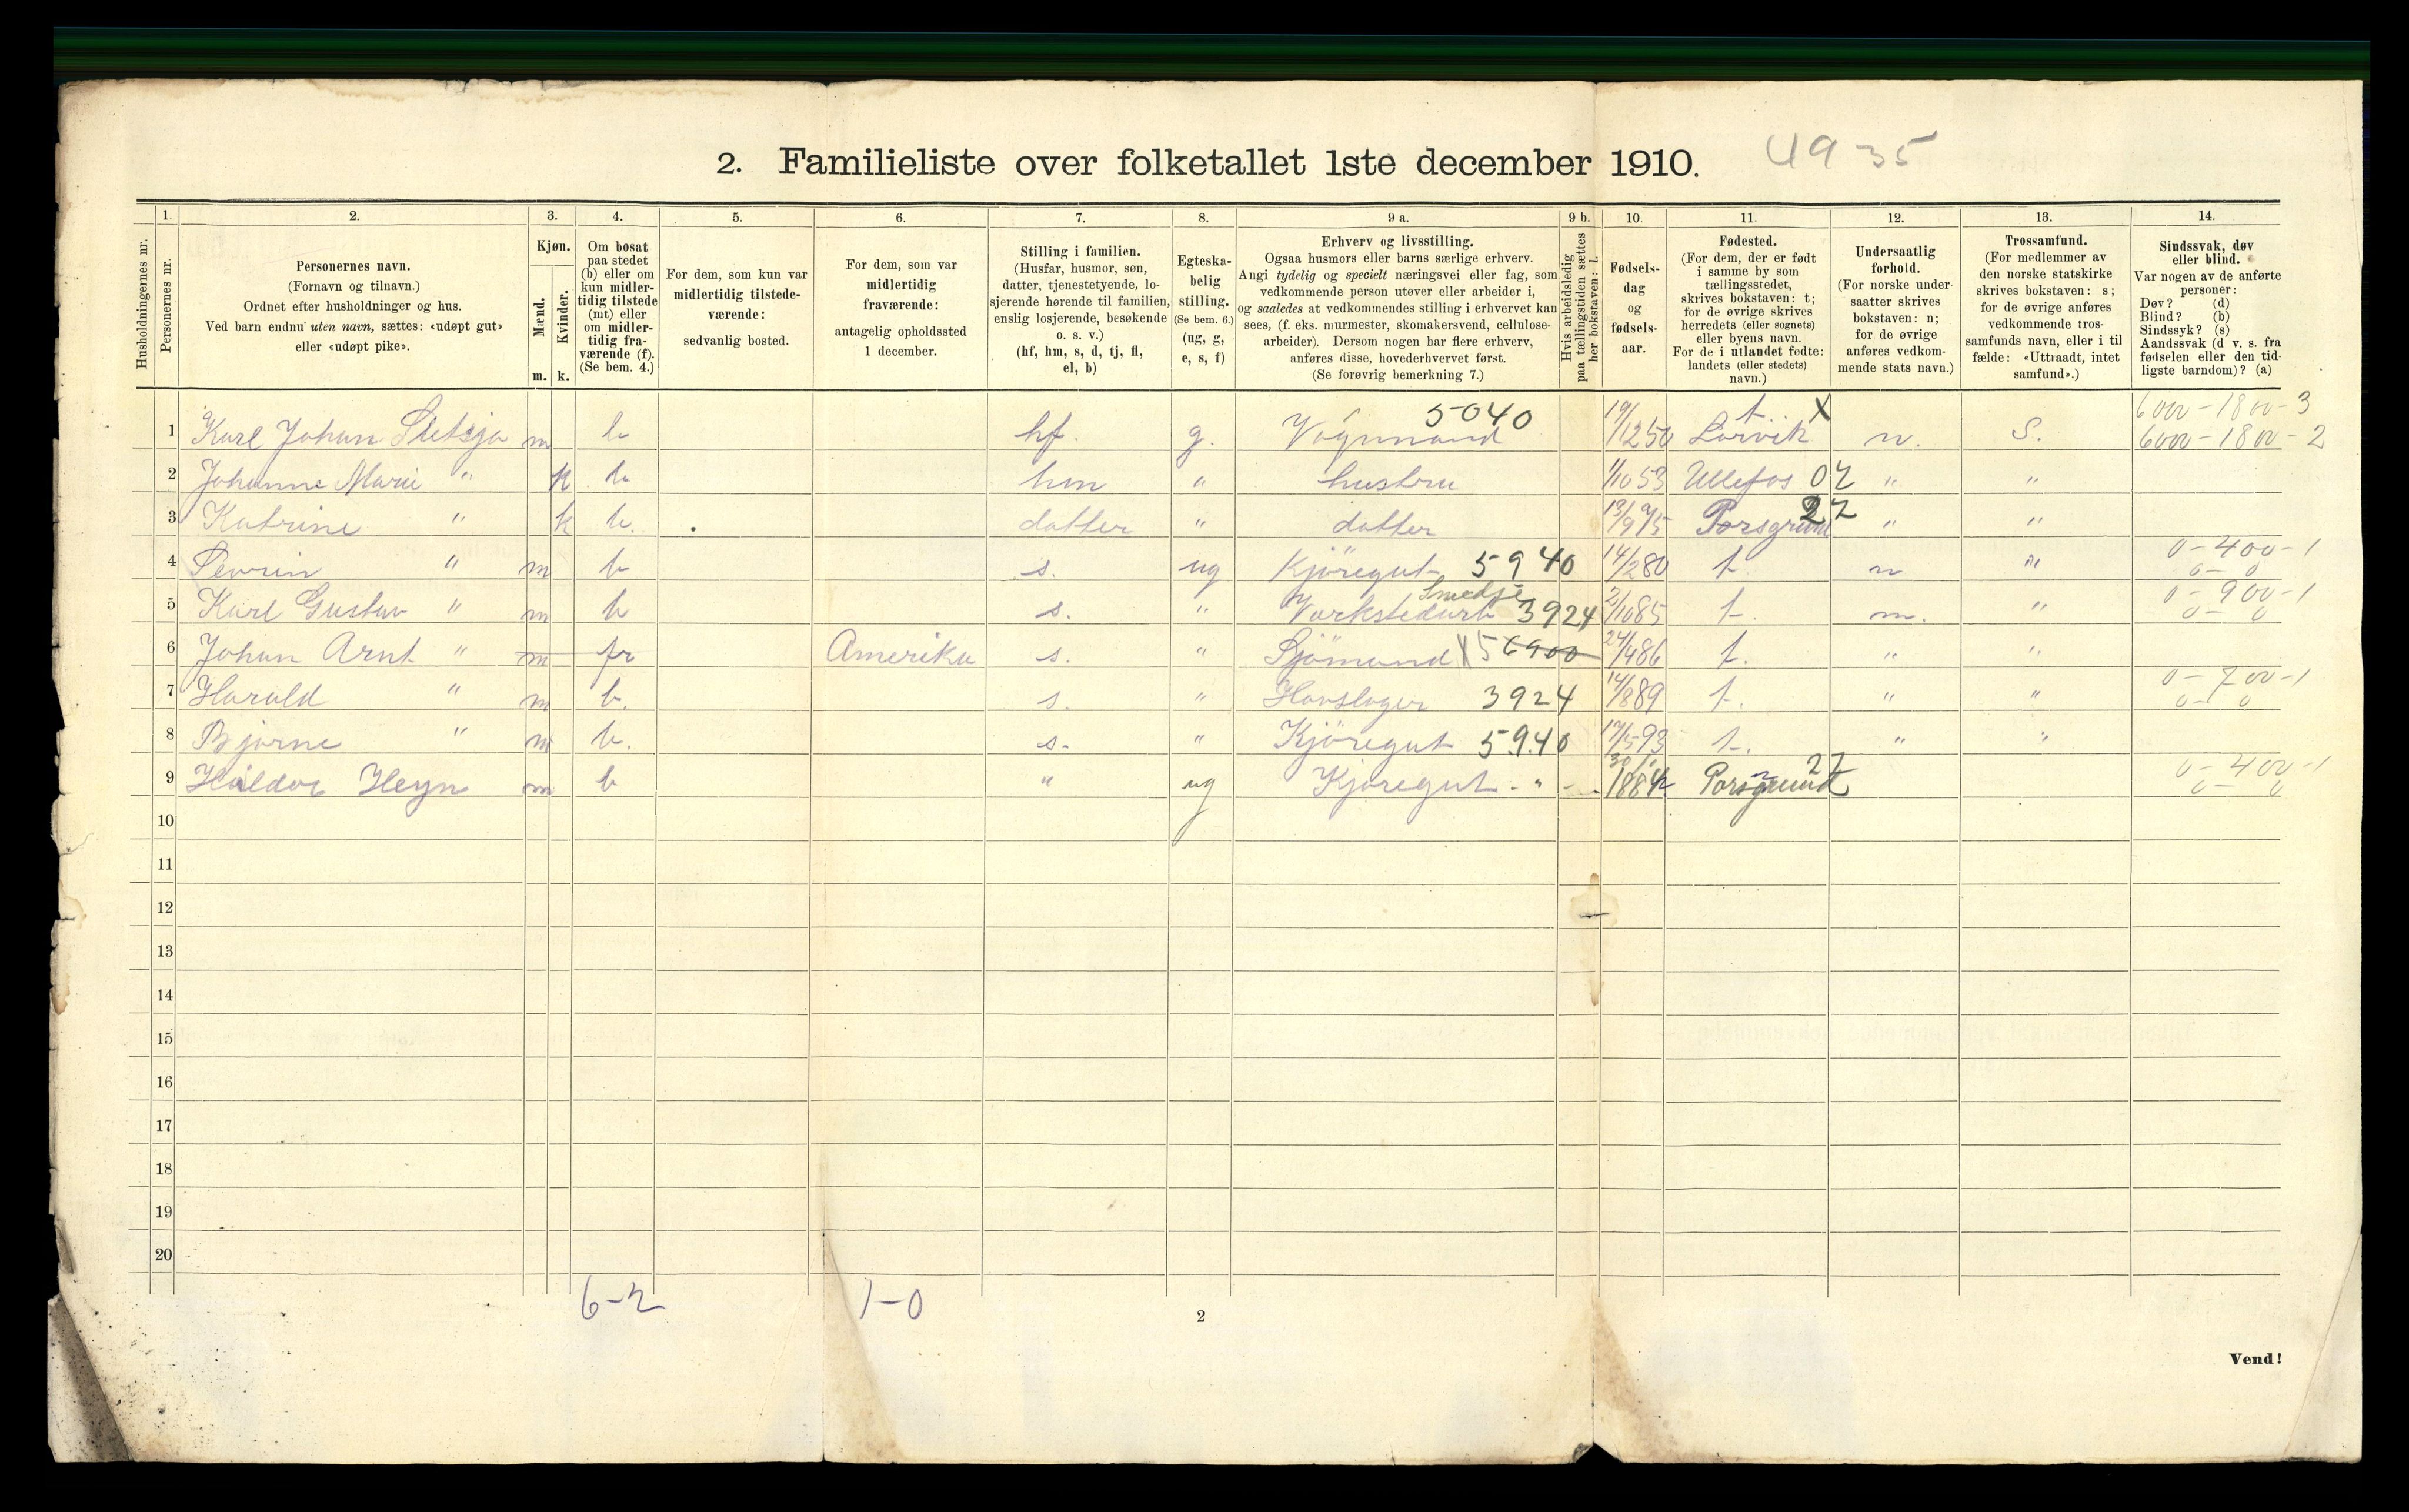 2. Familieliste over folketallet 1ste december 1910. 4935
Husholdningernes nr.
1. Personernes nr.
2. Personernes navn. (Fornavn og tilnavn.) Ordnet efter husholdninger og hus. Ved barn endnu uten navn, sættes: «udøpt gut» eller «udøpt pike».
3. Kjøn. Mænd. m. Kvinder. k.
4. Om bosat paa stedet (b) eller om kun midlertidig tilstede (mt) eller om midlertidig fraværende (f). (Se bem. 4.)
5. For dem, som kun var midlertidig tilstedeværende: sedvanlig bosted.
6. For dem, som var midlertidig fraværende: antagelig opholdssted 1 december.
7. Stilling i familien. (Husfar, husmor, søn, datter, tjenestetyende, losjerende hørende til familien, enslig losjerende, besøkende o. s. v.) (hf, hm, s, d, tj, fl, el, b)
8. Egteskabelig stilling. (Se bem. 6.) (ug, g, e, s, f)
9 a. Erhverv og livsstilling. Ogsaa husmors eller barns særlige erhverv. Angi tydelig og specielt næringsvei eller fag, som vedkommende person utøver eller arbeider i, og saaledes at vedkommendes stilling i erhvervet kan sees, (f. eks. murmester, skomakersvend, cellulosearbeider). Dersom nogen har flere erhverv, anføres disse, hovederhvervet først. (Se forøvrig bemerkning 7.)
9 b. Hvis arbeidsledig paa tællingstiden sættes her bokstaven: l.
10. Fødselsdag og fødselsaar.
11. Fødested. (For dem, der er født i samme by som tællingsstedet, skrives bokstaven: t; for de øvrige skrives herredets (eller sognets) eller byens navn. For de i utlandet fødte: landets (eller stedets) navn.)
12. Undersaatlig forhold. (For norske undersaatter skrives bokstaven: n; for de øvrige anføres vedkommende stats navn.)
13. Trossamfund. (For medlemmer av den norske statskirke skrives bokstaven: s; for de øvrige anføres vedkommende trossamfunds navn, eller i tilfælde: «Uttraadt, intet samfund».)
14. Sindssvak, døv eller blind. Var nogen av de anførte personer: Døv? (d) Blind? (b) Sindssyk? (s) Aandssvak (d v. s. fra fødselen eller den tidligste barndom)? (a)
1 Karl Johan m b hf. g. Vognmand 5040 19/12 50 t Larvik X n. S. 6000-1800-3 6000-1800-2
2 Johanne Marie " k b hm " hustru 1/10 53 Ullefos 07 " "
3 Katrine " k b. datter " datter 13/9 75 Porsgrund 27 " "
4 Sevrin " m b s. ug Kjøregut 5940 14/2 80 t n " 0-400-1 0-0
5 Karl Gustav " m b s. " Smedje Verkstedarb 3924 2/10 85 t. n. " 0-900-1 0-0
6 Johan Arnt " m fr Amerika s. " Sjømand 24/4 86 t. " "
7 Harald " m b. s. " Hovslager 3924 14/8 89 t. " " 0-700-1 0-0
8 Bjarne " m b. s. " Kjøregut 5940 17/5 93 t. " "
9 Haldor Heyn m b " ug Kjøregut - " - 1884 Porsgrund 27 0-400-1 0-0
10
11
12
13
14
15
16
17
18
19
20
6-2 1-0
2
Vend!